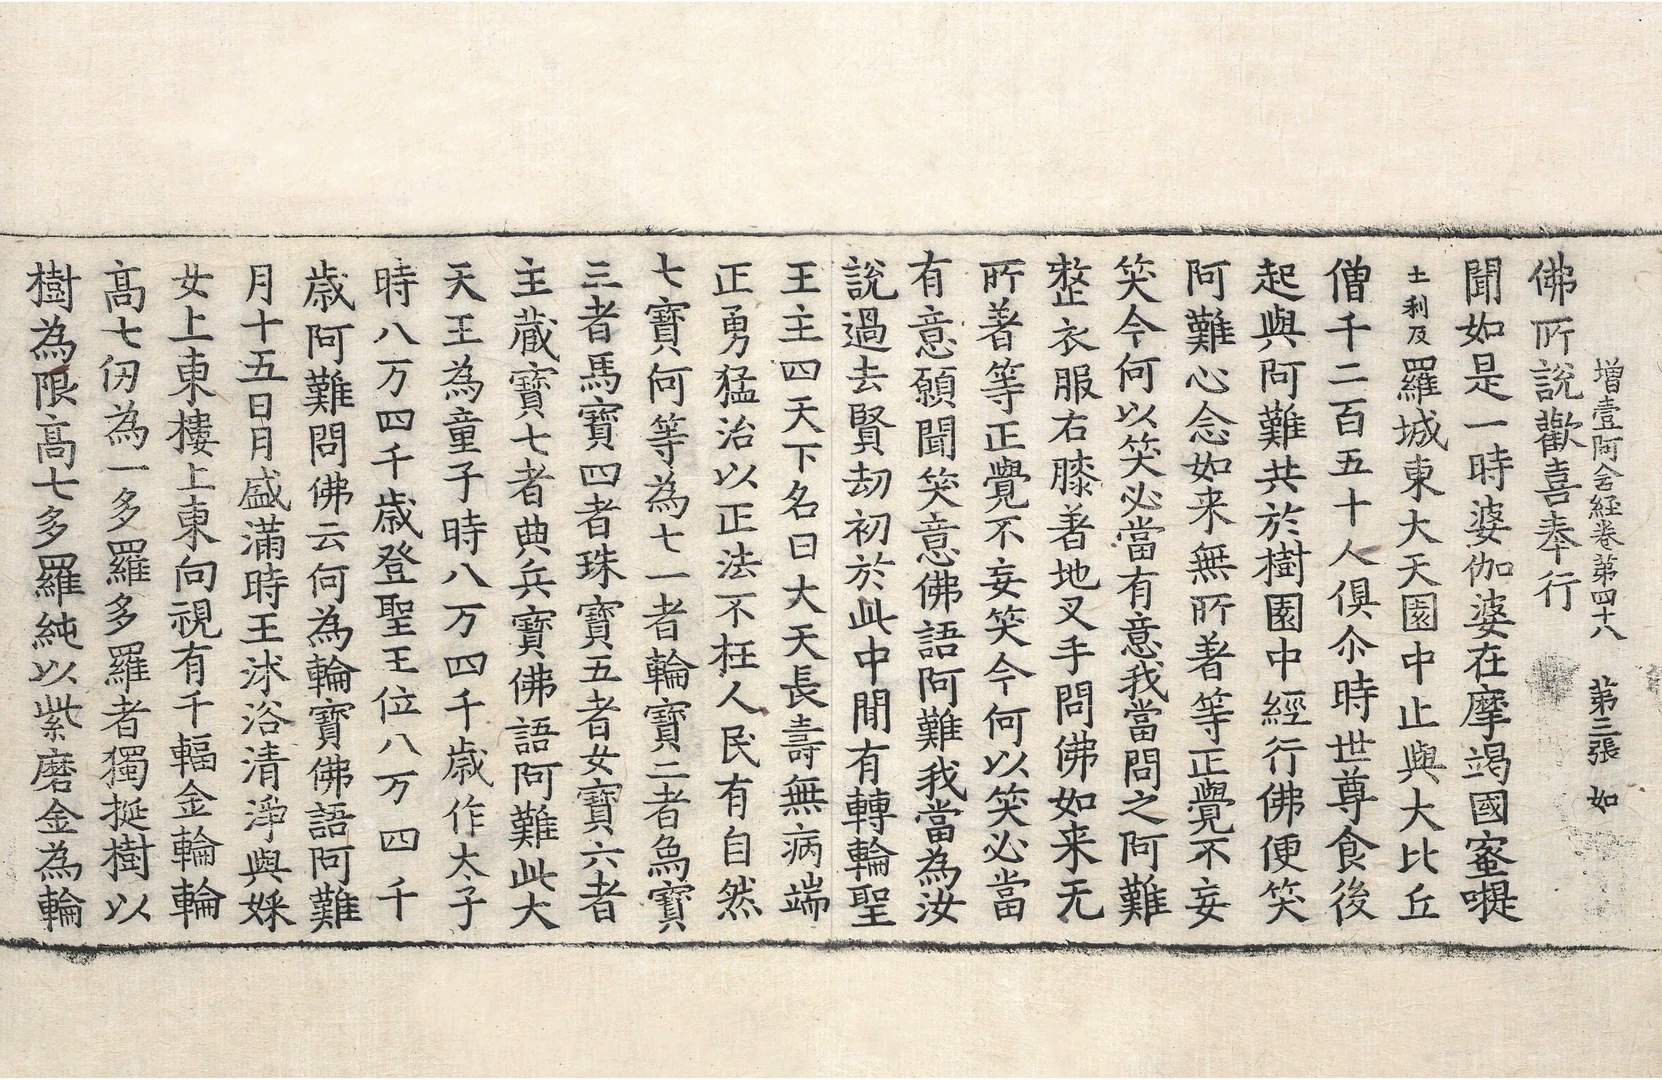 增壹阿含經卷第四十八 第三張 如
佛所說歡喜奉行
聞如是一時婆伽婆在摩竭國蜜㘑
土利反羅城東大天園中止與大比丘
僧千二百五十人俱尒時世尊食後
起與阿難共於樹園中經行佛便笑
阿難心念如来無所著等正覺不妄
笑今何以笑必當有意我當問之阿難
整衣服右膝著地叉手問佛如来无
所著等正覺不妄笑今何以笑必當
有意願聞笑意佛語阿難我當為汝
說過去賢劫初於此中間有轉輪聖
王主四天下名曰大天長壽無病端
正勇猛治以正法不枉人民有自然
七寶何等為七一者輪寶二者為寶
三者馬寶四者珠寶五者女寶六者
主藏寶七者典兵寶佛語阿難此大
天王為童子時八万四千歳作太子
時八万四千歳登聖王位八万四千
歳阿難問佛云何為輪寶佛語阿難
月十五日月盛滿時王沐浴清淨與婇
女上東樓上東向視有千輻金輪輪
髙七仞為一多羅多羅者獨挺樹以
樹為限髙七多羅純以紫磨金為輪